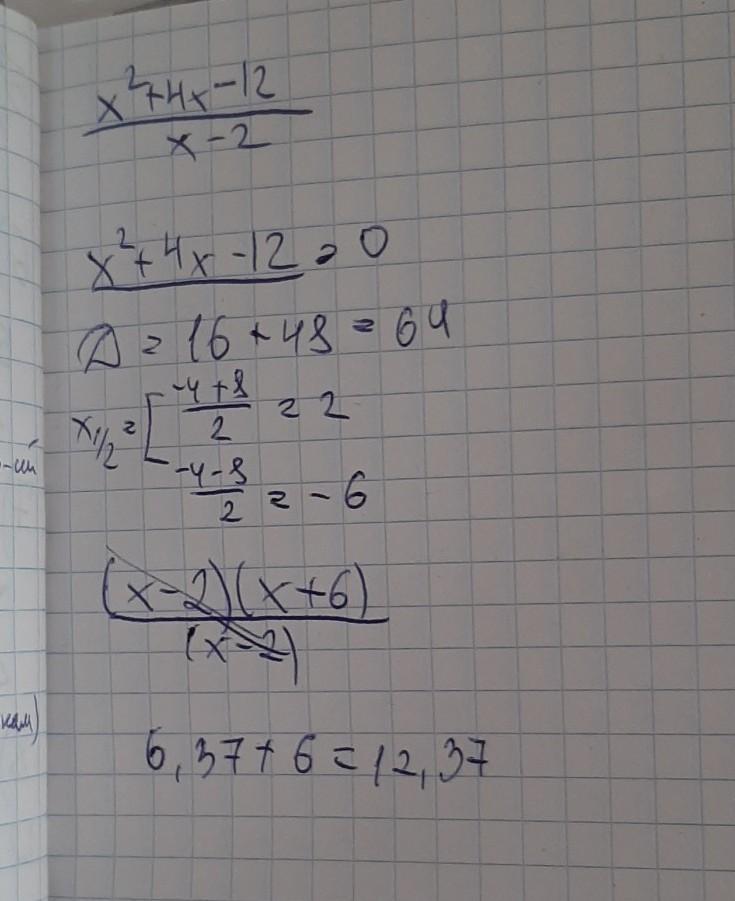 x²+4x-12
x-2
x²+4x-12=0
D=16+48=64
x₁/₂=[ -4+8
2 =2
-4-8
2 =-6
(x-2)(x+6)
(x-2)
6,37+6=12,37